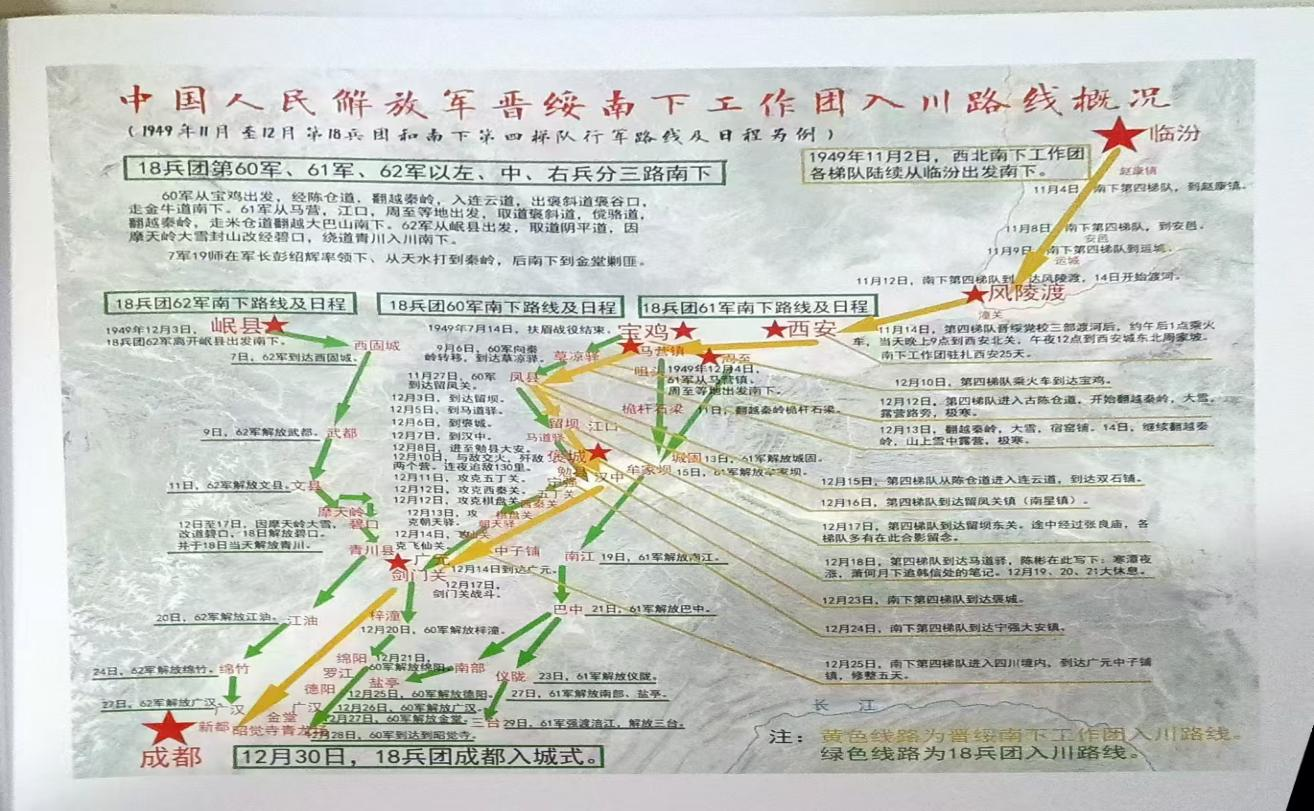 中国人民解放军晋绥南下工作团入川路线概况
（1949年11月至12月第18兵团和南下第四梯队行军路线及日程为例）
18兵团第60军、61军、62军以左、中、右兵分三路南下
60军从宝鸡出发，经陈仓道，翻越秦岭，入连云道，出褒斜道褒谷口，
走金牛道南下。61军从马营，江口，周至等地出发，取道褒斜道，傥骆道，
翻越秦岭，走米仓道翻越大巴山南下。62军从岷县出发，取道阴平道，因
摩天岭大雪封山改经碧口，绕道青川入川南下。
7军19师在军长彭绍辉率领下、从天水打到秦岭，后南下到金堂剿匪。
1949年11月2日，西北南下工作团
各梯队陆续从临汾出发南下。
临汾
赵康镇
11月4日，南下第四梯队，到赵康镇。
11月8日，南下第四梯队，到安邑。
安邑
11月9日，南下第四梯队到运城。
运城
11月12日，南下第四梯队到达风陵渡，14日开始渡河。
风陵渡
潼关
18兵团62军南下路线及日程
18兵团60军南下路线及日程
18兵团61军南下路线及日程
岷县
1949年12月3日，
18兵团62军离开岷县出发南下。
西固城
7日，62军到达西固城。
9日，62军解放武都。
武都
11日，62军解放文县。
文县
摩天岭
碧口
12日至17日，因摩天岭大雪，
改道碧口，18日解放碧口。
并于18日当天解放青川。
青川县
20日，62军解放江油。
江油
24日，62军解放绵竹。
绵竹
27日，62军解放广汉。
广汉
1949年7月14日，扶眉战役结束。
9月6日，60军向秦
岭转移，到达草凉驿。
草凉驿
11月27日，60军
到达留凤关。
凤县
12月3日，到达留坝。
12月5日，到马道驿。
12月6日，到褒城。
12月7日，到汉中。
12月8日，进至勉县大安。
12月10日，与敌交火，歼敌
两个营。连夜追敌130里。
12月11日，攻克五丁关。
12月12日，攻克西秦关。
12月12日，攻克棋盘关。
12月13日，攻
克朝天驿。
12月14日，攻
克飞仙关。
留坝
江口
马道驿
褒城
勉县
汉中
五丁关
西秦关
棋盘关
朝天驿
中子铺
广元
12月14日到达广元。
剑门关
12月17日，
剑门关战斗。
梓潼
12月20日，60军解放梓潼。
绵阳
12月21日，
60军解放绵阳。
罗江
德阳
12月25日，60军解放德阳。
广汉
12月26日，60军解放广汉。
金堂
12月27日，60军解放金堂。
新都
昭觉寺青龙场
12月28日，60军到达到昭觉寺。
宝鸡
马营镇
周至
西安
1949年12月4日，
61军从马营镇、
周至等地出发南下。
桅杆石梁
11日，翻越秦岭桅杆石梁。
城固
13日，61军解放城固。
牟家坝
15日，61军解放牟家坝。
南江
19日，61军解放南江。
巴中
21日，61军解放巴中。
南部
仪陇
23日，61军解放仪陇。
盐亭
27日，61军解放南部、盐亭。
三台
29日，61军强渡涪江，解放三台。
11月14日，第四梯队晋绥党校三部渡河后，约午后1点乘火
车，当天晚上9点到西安北关，午夜12点到西安城东北周家坡。
南下工作团驻扎西安25天。
12月10日，第四梯队乘火车到达宝鸡。
12月12日，第四梯队进入古陈仓道，开始翻越秦岭，大雪，
露营路旁，极寒。
12月13日，翻越秦岭，大雪，宿窑铺。14日，继续翻越秦
岭，山上雪中露营，极寒。
12月15日，第四梯队从陈仓道进入连云道，到达双石铺。
12月16日，第四梯队到达留凤关镇（南星镇）。
12月17日，第四梯队到达留坝东关。途中经过张良庙，各
梯队多有在此合影留念。
12月18日，第四梯队到达马道驿，陈彬在此写下：寒潭夜
涨，萧何月下追韩信处的笔记。12月19、20、21大休息。
12月23日，南下第四梯队到达褒城。
12月24日，南下第四梯队到达宁强大安镇。
12月25日，南下第四梯队进入四川境内，到达广元中子铺
镇，修整五天。
长江
成都
12月30日，18兵团成都入城式。
注：黄色线路为晋绥南下工作团入川路线。
绿色线路为18兵团入川路线。